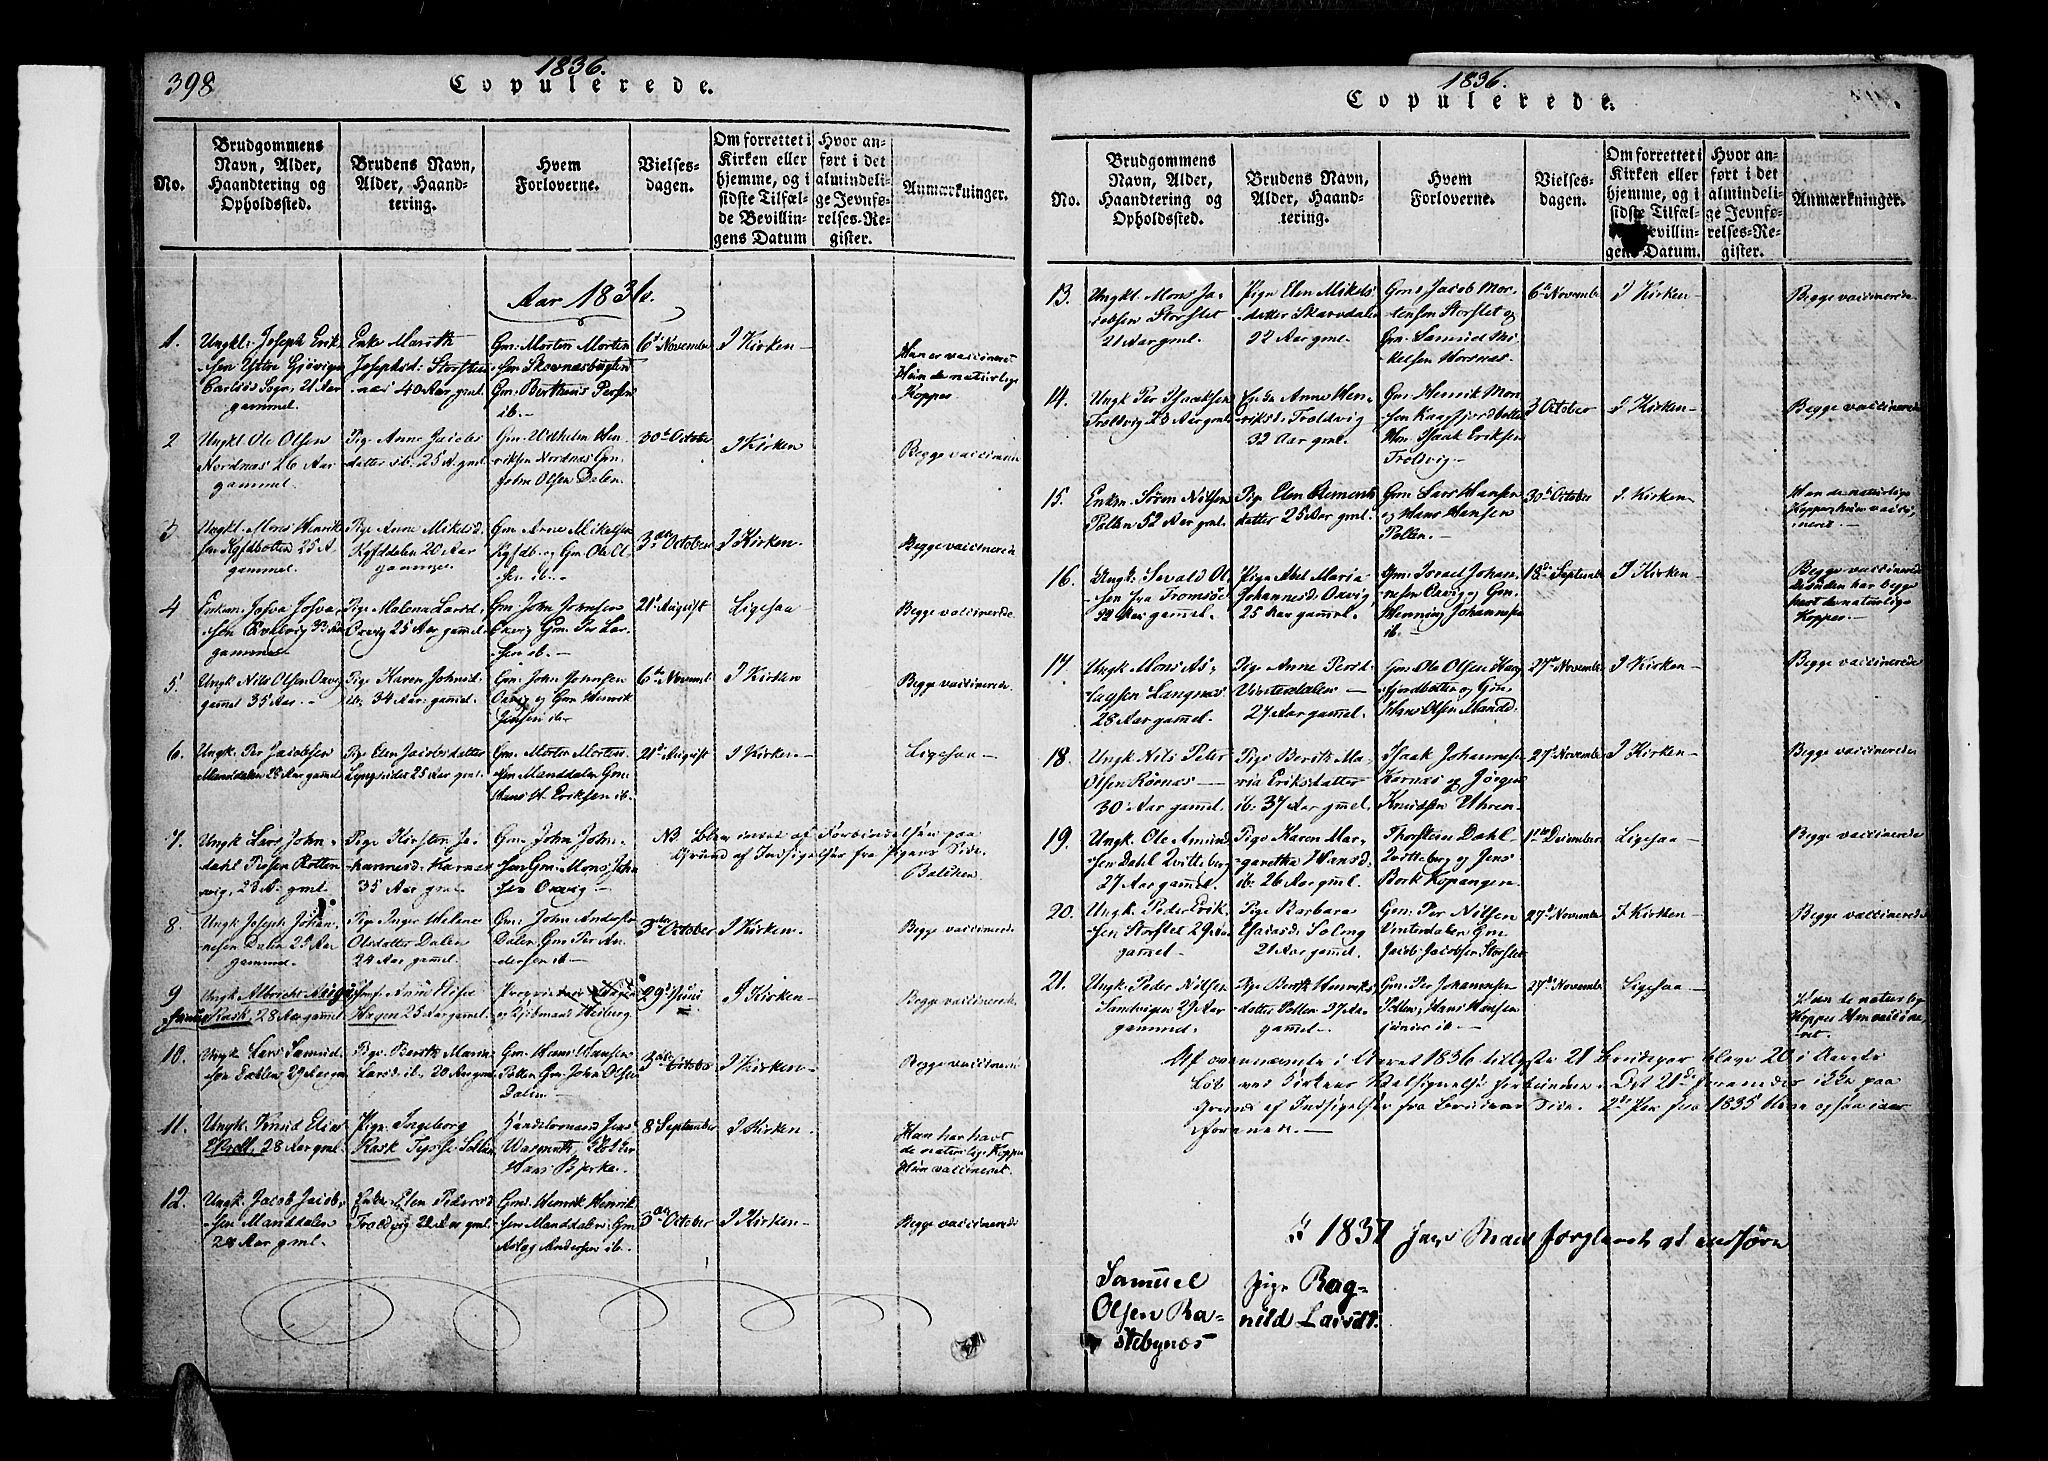 398
1836.
Copulerede.
No.
Brudgommens
Navn, Alder,
Haandtering og
Opholdssted.
Brudens Navn,
Alder, Haand-
tering.
Hvem
Forloverne.
Vielses-
dagen.
Om forrettet i
Kirken eller
hjemme, og i
sidste Tilfæl-
de Bevillin-
gens Datum
Hvor an-
ført i det
almindeli-
ge Jevnfø-
relses-Re-
gister.
Anmærkninger.
Aar 1836.
1.
Ungkl. Joseph Erik-
sen Ytre Gjövigen
Carlsö Sogn 21 Aar
gammel.
Enke Marith
Josephsd. Storsten-
næs 40 Aar gml.
Gm. Morten Morten-
sen Skovnæsbugten
Gm. Bertheus Persen
ib.
6te November
I Kirken
Han er vaccineret
Hun de naturlige
Kopper
2
Ungkl. Ole Olsen
Nordnæs 26 Aar
gammel.
Pig. Anne Jacobs
datter ib. 25 A. gml
Gm. Wilhelm Hen-
riksen Nordnæs Gm.
John Olsen Dalen
30te October
I Kirken
Begge vaccinerede
3
Ungkl. Mons Henrik-
sen Kgfdbotten 25 A
gammel.
Pige Anne Mikelsd.
Kgfddalen 20 Aar
gammel
Gm. Arne Mikelsen
Kgfdb. og Gm. Ole Ol-
sen ib.
3de October
I Kirken.
Begge vaccinerede
4
Enkem. Josva Josva-
sen 33 Aar
gammel
Pige Malena Larsd.
Oxvig 25 Aar gammel
Gm. John Johnsen
Oxvig Gm. Per Lar-
sen ib.
21de August
Ligesaa
Begge vaccinerede
5.
Ungk. Nils Olsen Oxvig
gammel 35 Aar.
Pige Karen Johnsd.
ib. 34 Aar gammel.
Gm. John Johnsen
Oxvig og Gm. Henrik
Jensen ib.
6te Novemb
I Kirken
Begge vaccinerede.
6.
Ungk. Per Jacobsen
Manddalen 28 Aar gammel
Pige Elen Jacobsdatter
Lyngseidet 25 Aar gml.
Gm. Morten Morten-
sen Manddalen Gm.
Hans H. Eriksen ib.
21de August
I Kirken
Ligesaa
7.
Ungk. Lars John-
dahl Persen Rotten-
vig, 28 A. gml.
Pige Kirsten Jo-
hannesd. Karnæs
35 Aar gml
Gm. John John-
sen Gm. Mons John-
sen Oxvig
NB Blev intet af Forbindelsen paa
Grund af Indsigelser fra Pigens Side.
Balchen
8.
Ungk. Joseph Johan-
nesen Dalen 23 Aar
gammel.
Pige Inger Helene
Olsdatter Dalen
24 Aar gammel
Gm. John Anders.
Dalen Gm. Per An-
dersen ib.
3de October
I Kirken
Begge vaccinerede
9
Ungk. Albricht August
Rask, 28 Aar gammel
Jomf. Anne Elise
Hagen 25 Aar gammel.
Proprietair
og Kjöbmand Heiberg
29de Juni
I Kirken
Begge vaccinerede.
10.
Ungk. Lars Samuel-
sen 29 Aar gml
Pige Berith Maria
Larsd. ib. 20 Aar gml
Gm. Hans Hansen
Pollen Gm. John Olsen
Dalen
3de October
I Kirken
Begge vaccinerede
11.
Ungk. Knud Elias
28 Aar gml.
Pige Ingeborg
Rask
Handelsmand Jens
Hans Bjerke.
8de September
I Kirken
Han har havt
de naturlige Kopper
Hun vaccineret.
12.
Ungk. Jacob Jacob-
sen Manddalen
28 Aar gml.
Enke Elen Pedersd.
Troldvig 22 Aar gml.
Gmd. Henrik Henrik-
sen Manddalen, Gm
Aslag Andersen ib.
3de October
I Kirken
Begge vaccinerede
1836.
Copulerede.
No.
Brudgommens
Navn, Alder,
Haandtering og
Opholdssted.
Brudens Navn,
Alder, Haand-
tering.
Hvem
Forloverne.
Vielses-
dagen.
Om forrettet i
Kirken eller
hjemme, og i
sidste Tilfæl-
de Bevillin-
gens Datum.
Hvor an-
ført i det
almindeli-
ge Jevnfø-
relses-Re-
gister.
Anmærkninger.
13.
Ungkl. Mons Ja-
cobsen Storslet
21 Aar gml.
Pige Elen Mikels-
datter Skarvdalen
22 Aar gml.
Gmd Jacob Mor-
tensen Storslet og
Gm. Samuel Mi-
kelsen Nordnæs.
6te November
I Kirken
Begge vaccinerede
14.
Ungk. Per Isaaksen
Troldvig 23 Aar gml.
Enke Anne Hen-
riksd. Troldvig
32 Aar gml.
Gm. Henrik Mon-
sen Kaafjordbotten
Gm. Isaak Eriksen
Troldvig
3 October
I Kirken
Begge vaccinerede
15.
Enkem. Sören Nilsen
Pollen 52 Aar gml.
Pige Elen Clements
datter 25 Aar gml.
Gm. Lars Hansen
og Hans Hansen
Pollen.
30te October
I Kirken
Han de naturlige
Kopper, hun vacci-
neret.
16.
Ungk. Sevald Ol-
sen fra Tromsöe
32 Aar gammel.
Pige Abel Maria
Johannesd. Oxvig,
25 Aar gammel.
Gm. Israel Johan-
nesen Oxvig og Gm.
Henning Johannesen
ib.
18de September
I Kirken
Begge vaccinerede
desuden har begge
havt de naturlige
Kopper.
17.
Ungk. Mons As-
lagsen Langnæs
28 Aar gammel.
Pige Anne Persd.
Vinterdalen
27 Aar gammel.
Gm. Ole Olsen Kaa-
fjordbotten og Gm.
Hans Olsen Mandd.
27de November
I Kirken
Begge vaccinerede
18.
Ungk. Nils Peter
Olsen
30 Aar gammel.
Pige Berith Ma-
ria Eriksdatter
ib. 37 Aar gmel.
Isaak Johannesen
Karnæs og Jörgen
Knudsen Uhren.
27de November
I Kirken
Begge vaccinerede
19.
Ungk. Ole Amund-
sen Dahl Qvitteberg
27 Aar gammel.
Pige Karen Mar-
garetha Hansd.
ib. 26 Aar gml.
Thorstein Dahl
Qvitteberg og Jens
Bork Kopangen.
1ste December
Ligesaa
Begge vaccinerede
20.
Ungk. Peder Erik-
sen Storslet 29 Aar
gammel
Pige Barbara
Esaiasd.
21 Aar gammel.
Gm. Per Nilsen
Vinterdalen Gm.
Jacob Jacobsen Storslet
27de November
I Kirken
Begge vaccinerede
21.
Ungk. Peder Nilsen
Sandvigen 29 Aar
gammel.
Pige Berit Henriks-
datter Pollen 27 Aar
gammel.
Gm. Per Johannesen
Pollen, Hans Hansen
junior ib.
27de November
Ligesaa
Han de naturlige
Kopper Hun vaccine-
ret.
Af ovennævnte i Aaret 1836 tillyste 21 Brudepar bleve 20 i Aarets
Löb ved Kirkens Velsignelse forbundne. Det 21de forenedes ikke paa
Grund af Indsigelse fra Brudens Side. 2de Par fra 1835 bleve ogsaa i dette
forenede.
1837 Jens Rask forglemt at indföre
Samuel
Olsen Ra-
stebynæs
Pige Rag-
nild Larsdt.